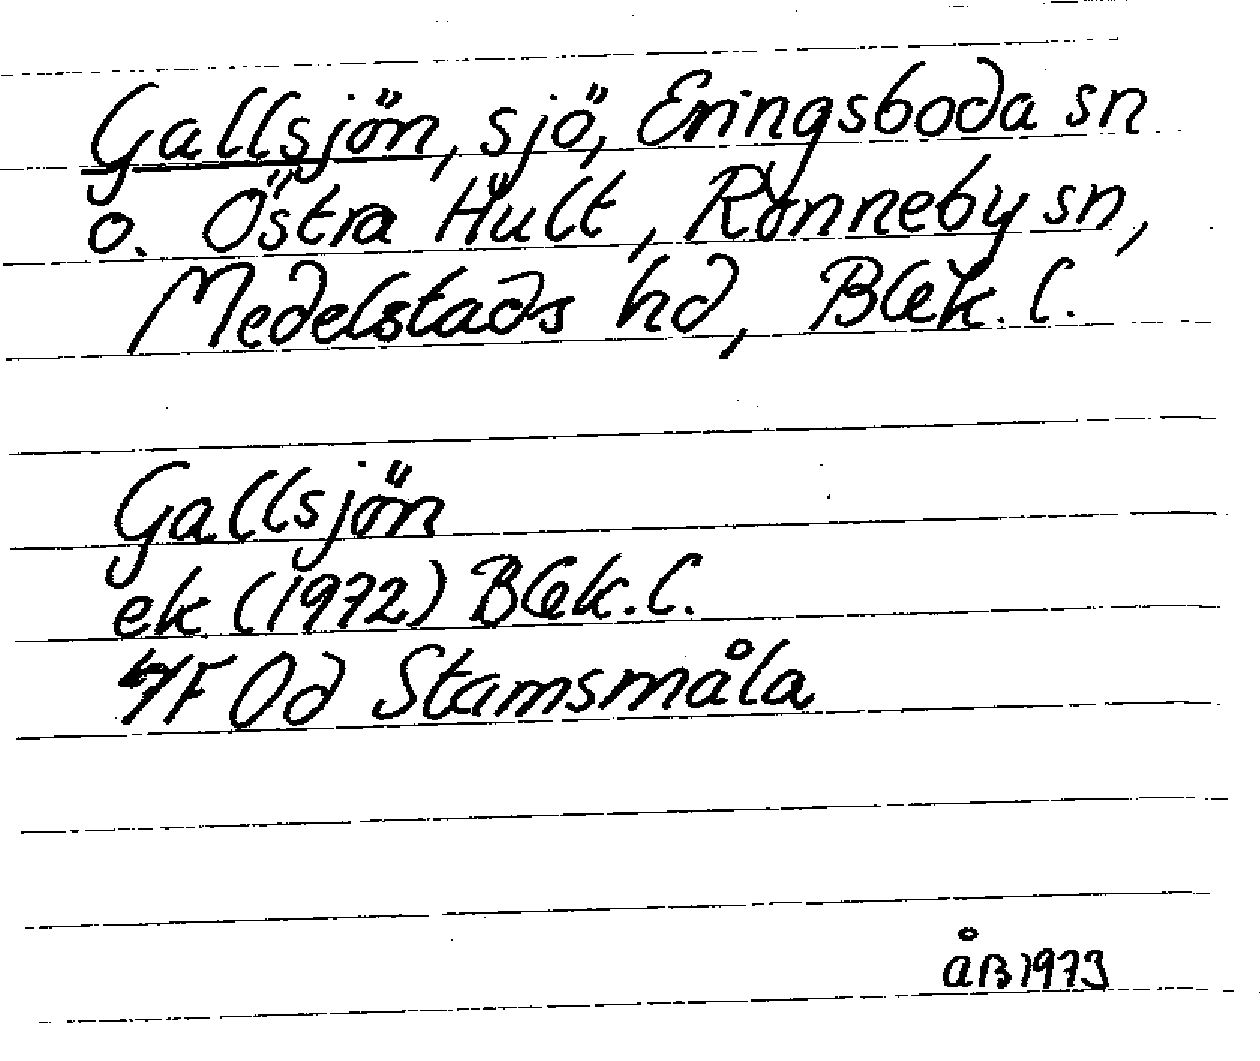 Gallsjön, sjö, Eringsboda sn
o. Östra Hult, Ronneby sn,
Medelstads hd, Blek. l.
Gallsjön
ek (1972) Blek. l.
4F 0d Stamsmåla
åB 1973